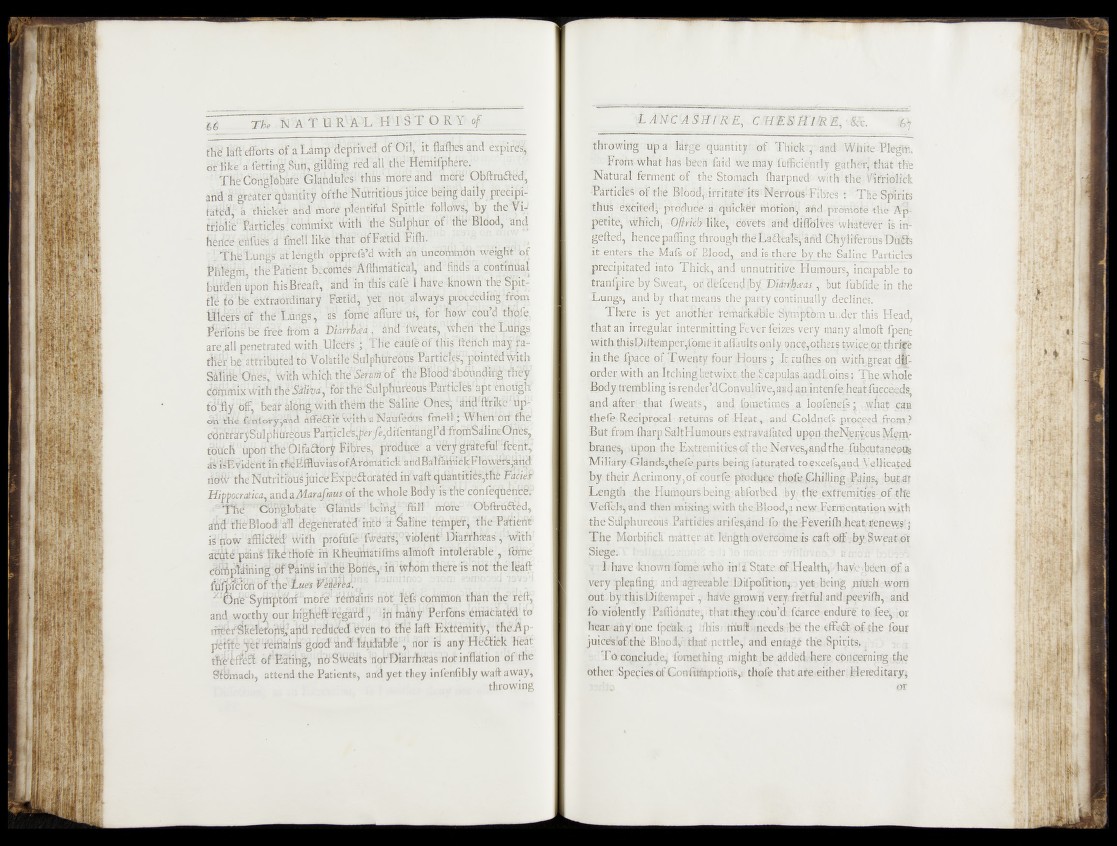 66 The NATURAL HISTORY of
the laſt efforts of a Lamp deprived of Oil, it flaſhes and expires,
or like a ſetting Sun, gilding red all the Hemiſphere.
The Conglobate Glandules thus more and more Obſtructed,
and a greater quantity of the Nutritious juice being daily precipi-
tated, a thicker and more plentiful Spittle follows, by the Vi-
triolic Particles commixt with the Sulphur of the Blood, and
hence enſues a ſmell like that of Fœtid Fiſh.
The Lungs at length oppreſs'd with an uncommon weight of
Phlegm, the Patient becomes Aſthmatical, and finds a continual
burden upon his Breaſt, and in this caſe I have known the Spit-
tle to be extraordinary Fœtid, yet not always proceeding from
Ulcers of the Lungs, as ſome aſſure us, for how cou'd thoſe
Perſons be free from a Diarrhœa, and ſweats, when the Lungs
are all penetrated with Ulcers; The cauſe of this ſtench may ra-
ther be attributed to Volatile Sulphureous Particles, pointed with
Saline Ones, with which the Serum of the Blood abounding they
commix with the Saliva, for the Sulphureous Particles apt enough
to fly off, bear along with them the Saline Ones, and ſtrike up-
on the ſentory, and affect it with a Nauſeous ſmell: When on the
contrary Sulphureous Particles, per ſe, diſentangl'd from Saline Ones,
touch upon the Olfactory Fibres, produce a very grateful ſcent,
as is Evident in the Effluvias of Aromatick and Balſamick Flowers, and
now the Nutritious juice Expectorated in vaſt quantities, the Facies
Hippocratica, and a Maraſmus of the whole Body is the conſequence.
The Conglobate Glands being ſtill more Obſtructed,
and the Blood all degenerated into a Saline temper, the Patient
is now afflicted with profuſe ſweats, violent Diarrhœas, with
acute pains like thoſe in Rheumatiſms almoſt intolerable, ſome
complaining of Pains in the Bones, in whom there is not the leaſt
ſuſpicion of the Lues Venerea.
One Symptom more remains not leſs common than the reſt,
and worthy our higheſt regard, in many Perſons emaciated to
meer Skeletons, and reduced even to the laſt Extremity, the Ap-
petite yet remains good and laudable, nor is any Hectick heat
the effect of Eating, no Sweats nor Diarrhœas nor inflation of the
Stomach, attend the Patients, and yet they inſenſibly waſt away,
throwing
LANCASHIRE, CHESHIRE, &c. 67
throwing up a large quantity of Thick, and White Plegm.
From what has been ſaid we may ſufficiently gather, that the
Natural ferment of the Stomach ſharpned with the Vitriolick
Particles of the Blood, irritate its Nervous Fibres: The Spirits
thus excited, produce a quicker motion, and promote the Ap-
petite, which, Oſtrich like, covets and diſſolves whatever is in-
geſted, hence paſſing through the Lacteals, and Chyliferous Ducts
it enters the Maſs of Blood, and is there by the Saline Particles
precipitated into Thick, and unnutritive Humours, incapable to
tranſpire by Sweat, or deſcend by Diarrhœas, but ſubſide in the
Lungs, and by that means the party continually declines.
There is yet another remarkable Symptom under this Head,
that an irregular intermitting Fever ſeizes very many almoſt ſpent
with this Diſtemper, ſome it aſſaults only once, others twice or thrice
in the ſpace of Twenty four Hours; It ruſhes on with great diſ-
order with an Itching betwixt the Scapulas and Loins: The whole
Body trembling is render'd Convulſive, and an intenſe heat ſucceeds,
and after that ſweats, and ſometimes a looſeneſs; what can
theſe Reciprocal returns of Heat, and Coldneſs proceed from?
But from ſharp Salt Humours extravaſated upon the Nervous Mem-
branes, upon the Extremities of the Nerves, and the ſubcutaneous
Miliary Glands, theſe parts being ſaturated to exceſs, and Vellicated
by their Acrimony, of courſe produce thoſe Chilling Pains, but at
Length the Humours being abſorbed by the extremities of the
Veſſels, and then mixing with the Blood, a new Fermentation with
the Sulphureous Particles ariſes, and ſo the Feveriſh heat renews;
The Morbifick matter at length overcome is caſt off by Sweat or
Siege.
I have known ſome who in a State of Health, have been of a
very pleaſing and agreeable Diſpoſition, yet being much worn
out by this Diſtemper, have grown very fretful and peeviſh, and
ſo violently Paſſionate, that they cou'd ſcarce endure to ſee, or
hear any one ſpeak; this muſt needs be the effect of the ſour
juices of the Blood, that nettle, and enrage the Spirits.
To conclude, ſomething might be added here concerning the
other Species of Conſumptions, thoſe that are either Hereditary,
or